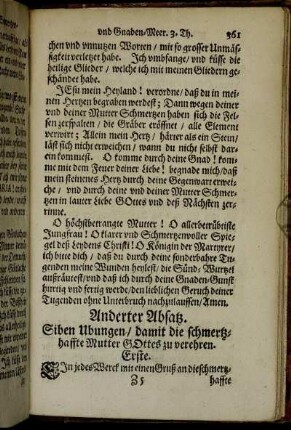 vnd Gnaden-Meer. 3. Th. 361
chen vnd vnnutzen Worten / mit so grosser Unmäs-
sigkeit verletzet habe. Jch vmbfange / vnd küsse die
heilige Glieder / welche ich mit meinen Gliedern ge-
schändet habe.
JEsu mein Heyland! verordne / daß du in mei-
nen Hertzen begraben werdest; Dann wegen deiner
vnd deiner Mutter Schmertzen haben sich die Fel-
sen zerspalten / die Gräber eröffnet / alle Element
verwirr; Allein mein Hertz / härter als ein Stein /
läst sich nicht erweichen / wann du nicht selbst dar-
ein kommest. O komme durch deine Gnad! kom-
me mit dem Feuer deiner Liebe! begnade mich / daß
mein steinenes Hertz durch deine Gegenwart erwei-
che / vnd durch deine vnd deiner Mutter Schmer-
tzen in lauter Liebe GOttes vnd deß Nächsten zer-
rinne.
O höchstbetrangte Mutter! O allerbetrübtiste
Jungfrau! O klarer vnd Schmertzenvoller Spie-
gel deß Leydens Christi! O Königin der Martyrer /
ich bitte dich / daß du durch deine sonderbahre Tu-
genden meine Wunden heylest / die Sünd-Wurtzel
außräutest / vnd daß ich durch deine Gnaden-Gunst
hurtig vnd fertig werde / den lieblichen Geruch deiner
Tugenden ohne Unterbruch nachzulauffen / Amen.
Anderter Absatz.
Siben Ubungen / damit die schmertz-
haffte Mutter GOttes zu verehren.
Erste.
EJn jedes Werck mit einen Gruß an die schmertz-
Z 5 haffte